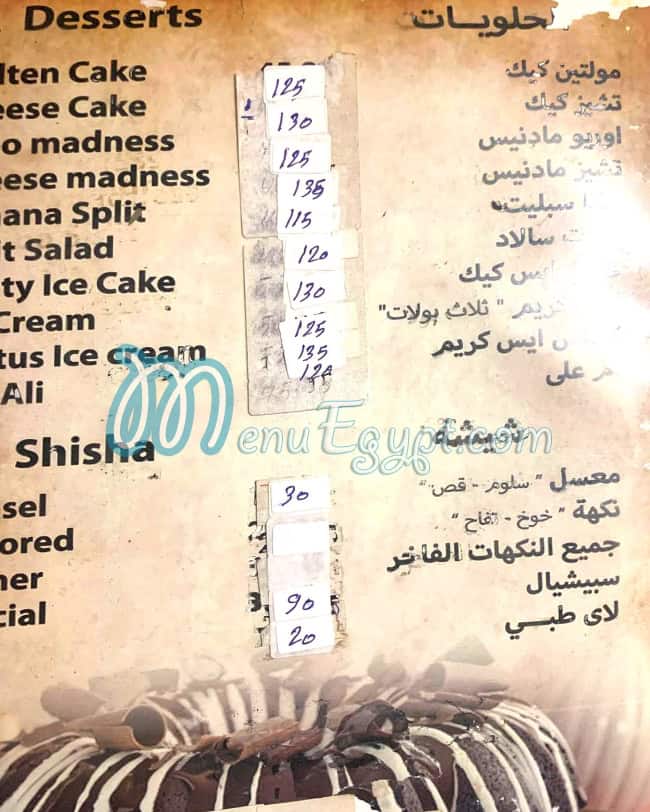 Desserts الحلويات
lten Cake 125 مولتين كيك
eese Cake 130 تشيز كيك
o madness 125 اوريو مادنيس
eese madness 135 تشيز مادنيس
ana Split 115 سبليت
it Salad 120 سالاد
ty Ice Cake 130 ايس كيك
Cream 125 كريم " ثلاث بولات"
tus Ice cream 135 ايس كريم
Ali 120 م على
MenuEgypt.com
Shisha شيشة
sel 30 معسل " سلوم - قص "
ored نكهة " خوخ - تفاح "
her جميع النكهات الفاخر
cial 90 سبيشيال
20 لاى طبـــي